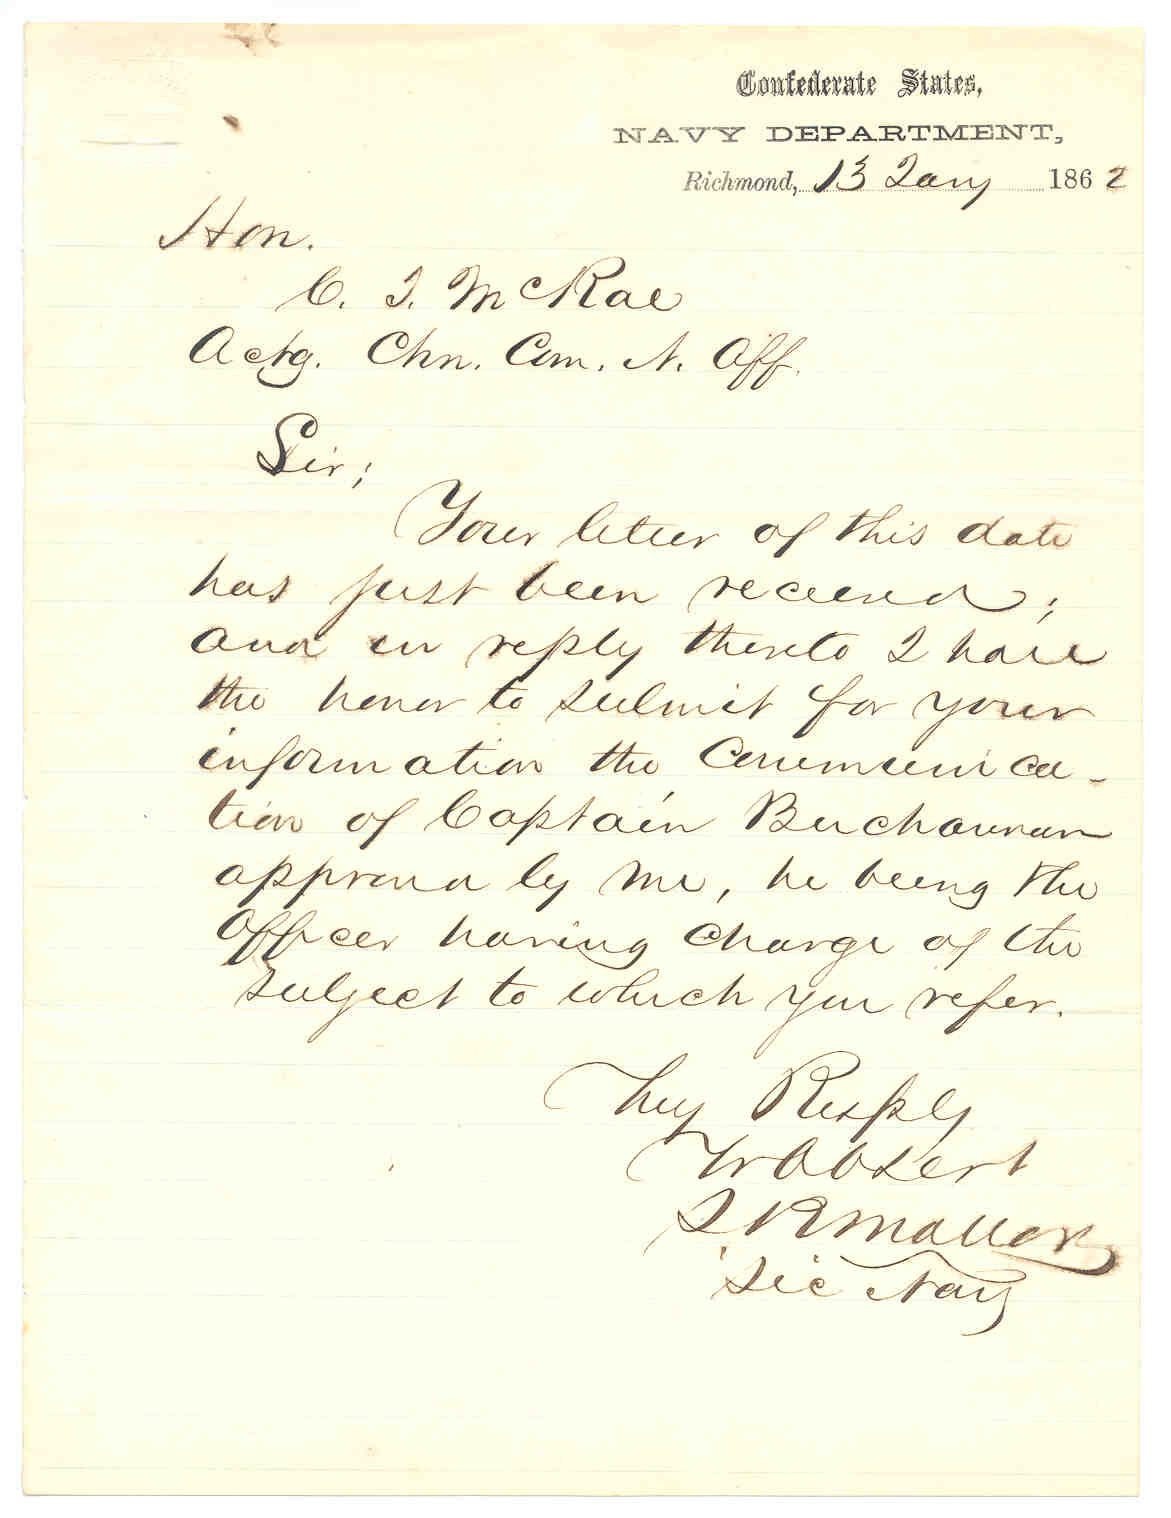 Confederate States,
NAVY DEPARTMENT,
Richmond, 13 Jany 1862
Hon.
C. J. McRae
Actg. Chn. Com. N. Aff.
Sir;
Your letter of this date
has just been received;
and in reply thereto I have
the honor to submit for your
information the Communica-
tion of Captain Buchanan
approved by me, he being the
Officer having charge of the
subject to which you refer.
Very Resply
Yr Ob Servt
S R Mallory
Sec Navy